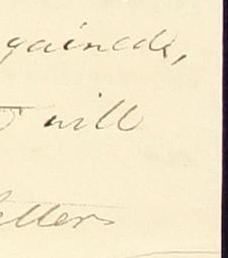 gained,
will
letters